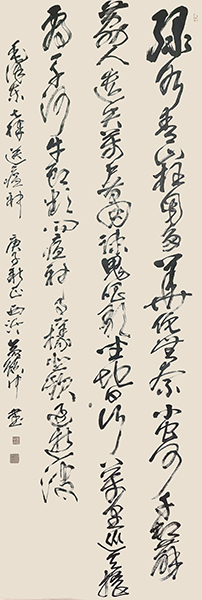 绿水青山枉自多華佗無奈小虫何千村薜
荔人遗矢萬户萧疏鬼唱歌坐地日行八萬里巡天遥
看一千河牛郎欲问瘟神事一樣悲歡逐逝波
毛泽东七律送瘟神 庚子新正